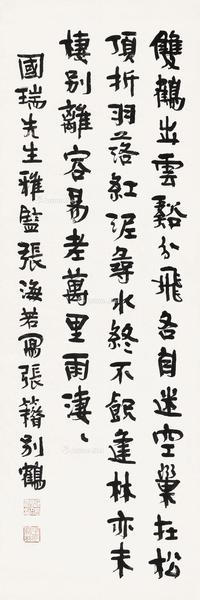 雙鶴出雲谿分飛各自迷空巢在松
頂折羽落紅泥尋水終不飲逢林亦未
棲別離容易老萬里雨淒、
國瑞先生雅監張海若寫張籍別鶴